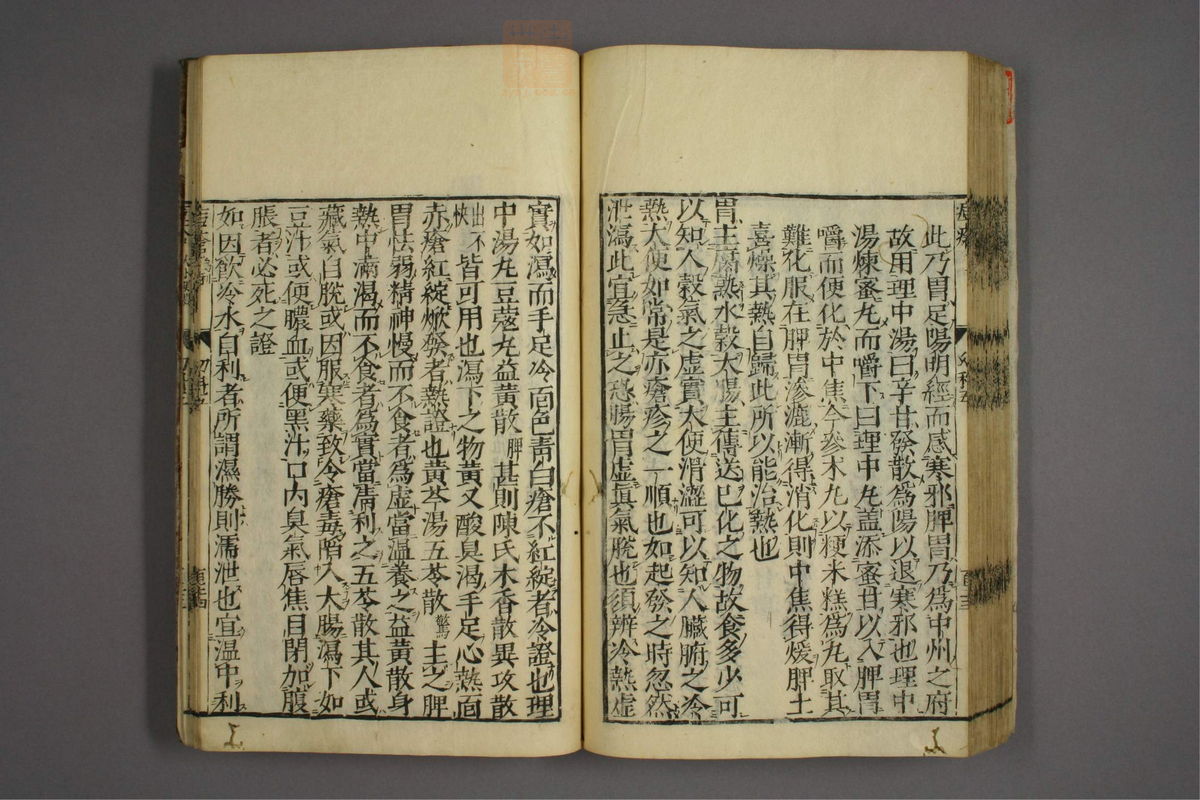 此乃胃足陽明經而感寒邪脾胃乃爲中州之府
故用理中湯曰辛甘發散爲陽以退寒邪也理中
湯煉蜜丸而嚼下曰理中丸蓋添蜜甘以入脾胃
嚼而便化於中焦今參朮丸以粳米糕爲丸取其
難化服在脾胃滲漉漸得消化則中焦得煖脾土
喜燥其熱自歸此所以能治熱也
胃主腐熟水穀大腸主傳送已化之物故食多少可
以知人穀氣之虛實大便滑澀可以知人臟腑之冷
熱大便如常是亦瘡疹之一順也如起發之時忽然
泄瀉此宜急止之恐腸胃虛眞氣脫也須辨冷熱虛
實如瀉而手足冷面色靑白瘡不紅綻者冷證也理
中湯丸豆蔻丸益黃散脾甚則陳氏木香散異攻散
出不快皆可用也瀉下之物黃又酸臭渴手足心熱面
赤瘡紅綻焮發者熱證也黃芩湯五苓散驚主之脾
胃怯弱精神慢而不食者爲虛當溫養之益黃散身
熱中滿渴而不食者爲實當淸利之五苓散其人或
藏氣自脫或因服寒藥致令瘡毒陷入大腸瀉下如
豆汁或便膿血或便黑汁口內臭氣唇焦目閉加腹
脹者必死之證
如因飮冷水自利者所謂濕勝則濡泄也宜溫中利